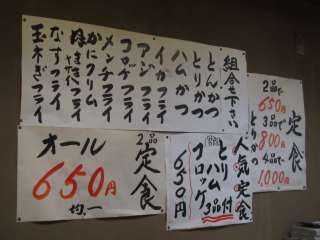 組合せ下さい
とんかつ
とりかつ
ハムカツ
イカフライ
アジフライ
コロッケフライ
メンチフライ
かにクリーム
なすフライ
玉ネギフライ
定食
2品で
650円
3品で
800円
4品で
1,000円
オール
2品
定食
650円
均一
人気定食
とりかつ
ハム
コロッケ
3品付
650円